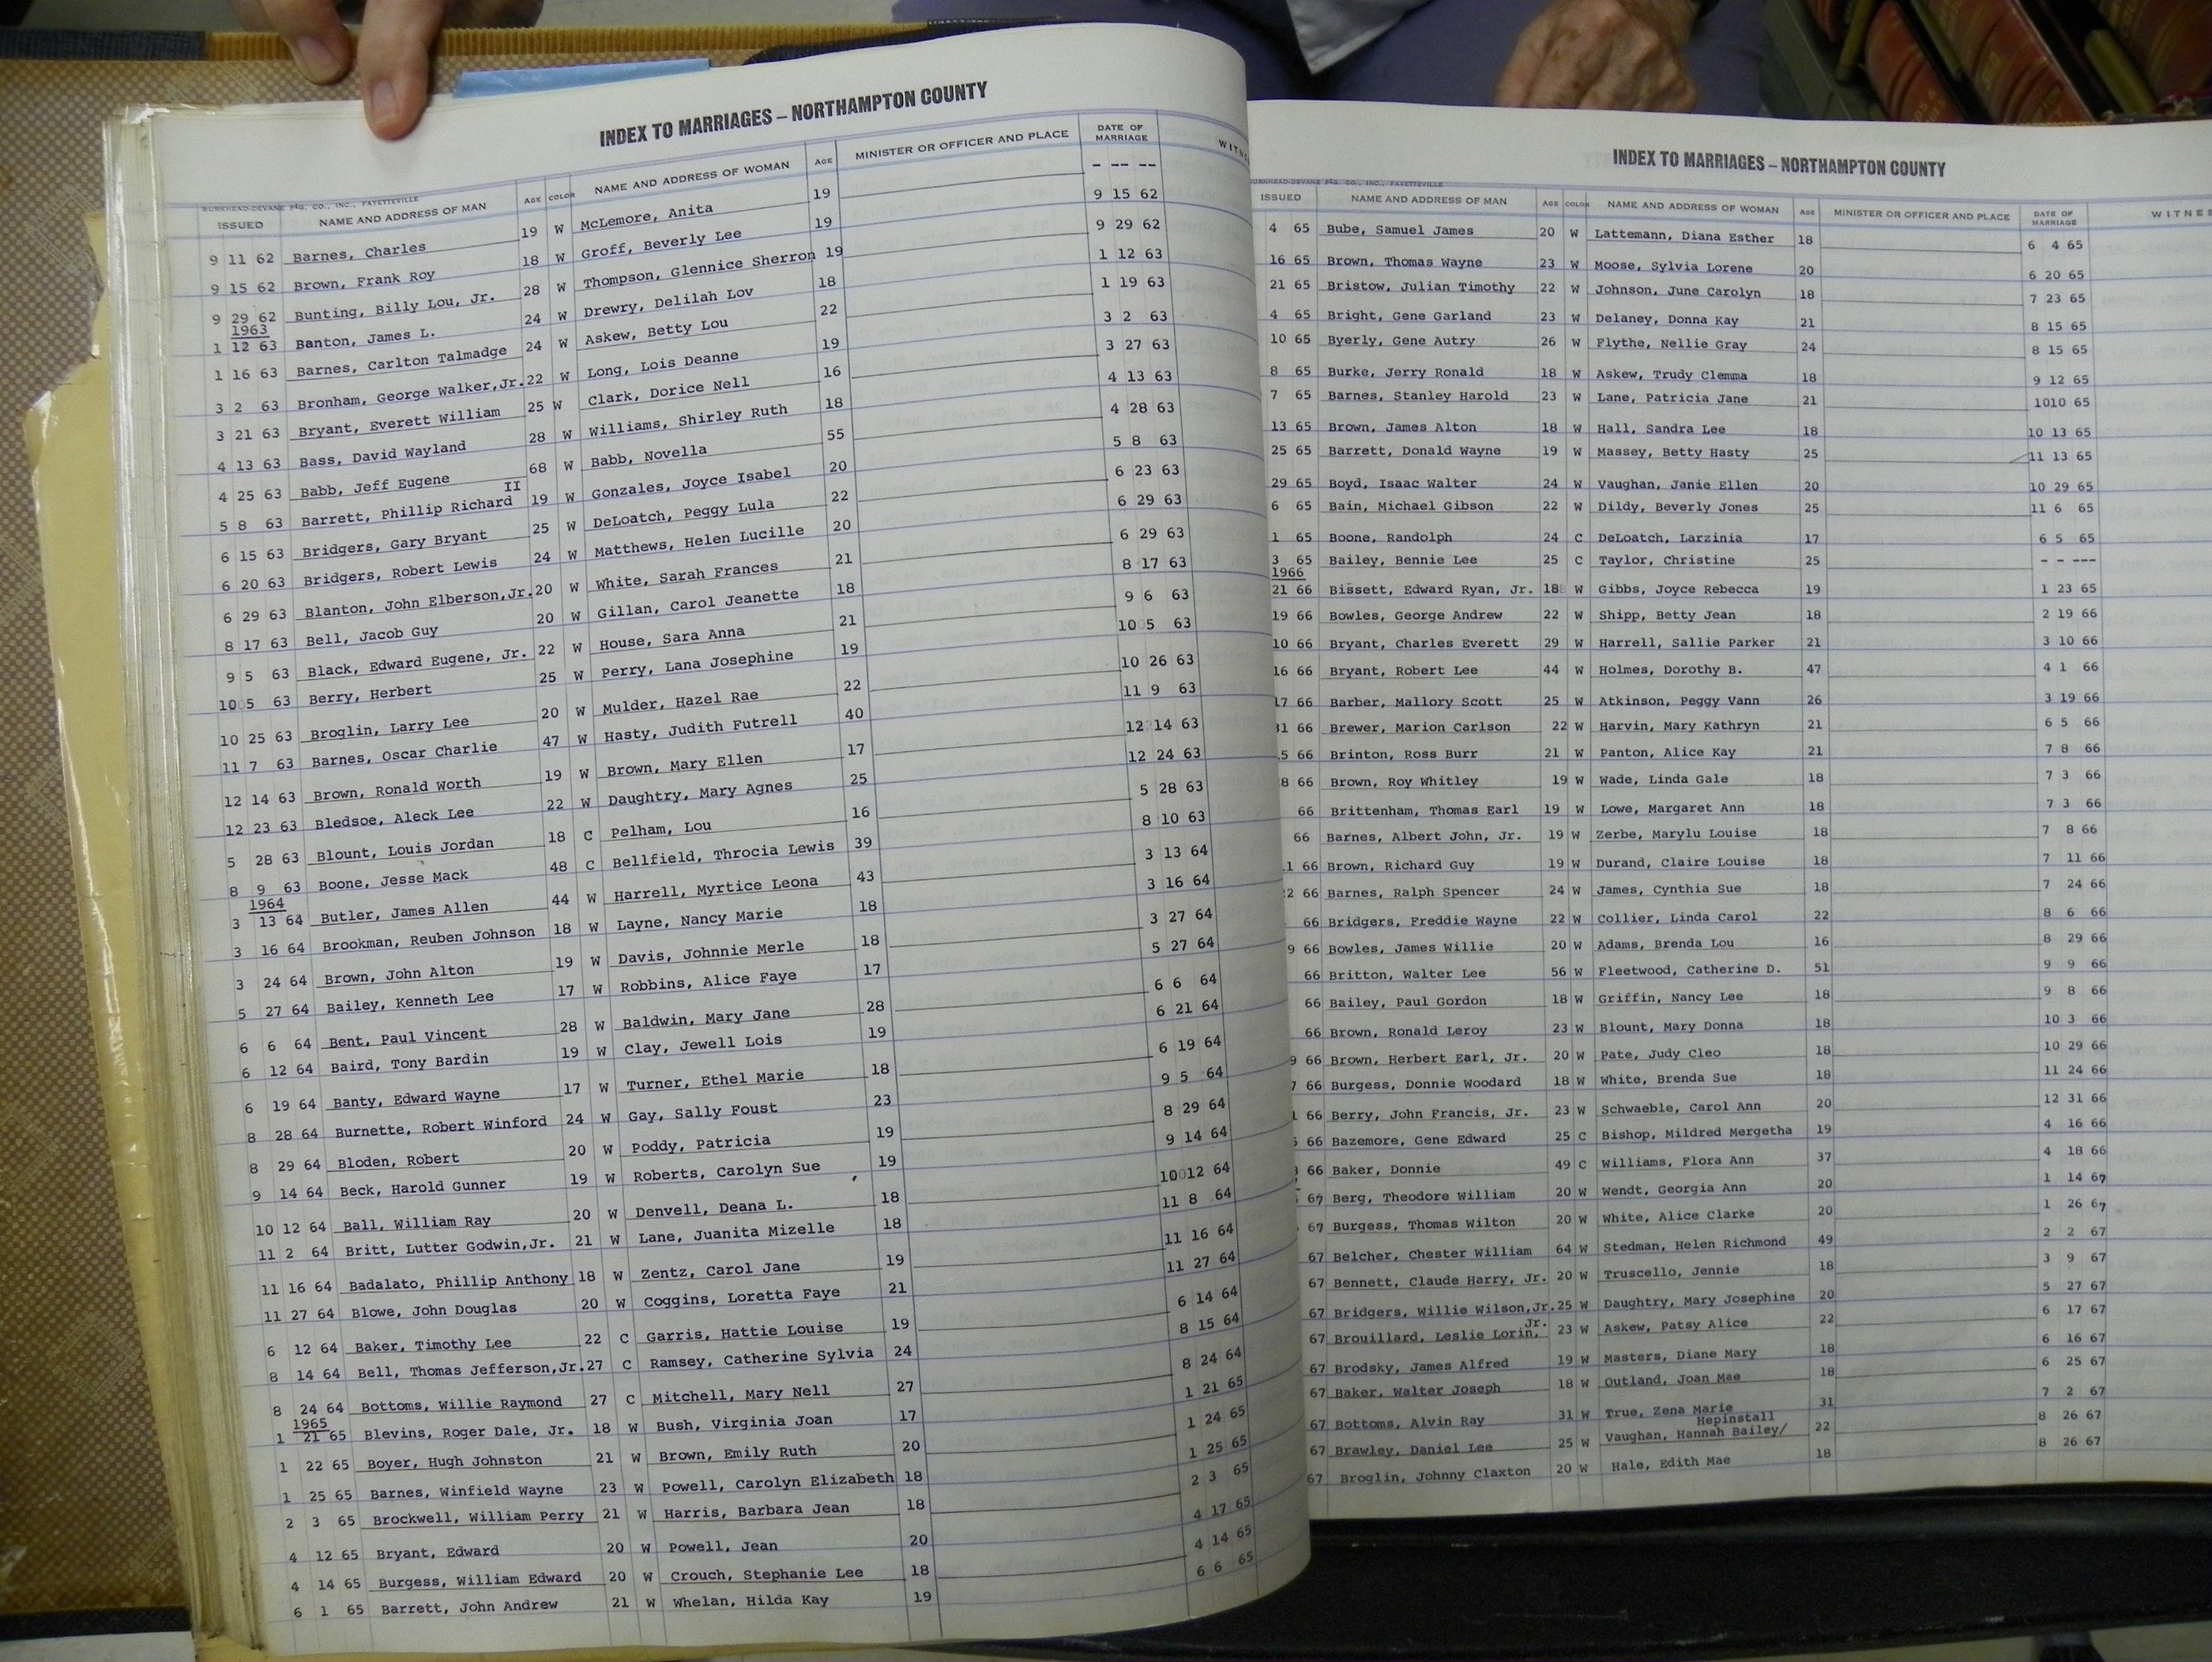 INDEX TO MARRIAGES – NORTHAMPTON COUNTY
BURKHEAD-DEVANE P'T'G. CO., INC., FAYETTEVILLE
ISSUED NAME AND ADDRESS OF MAN AGE COLOR NAME AND ADDRESS OF WOMAN AGE MINISTER OR OFFICER AND PLACE DATE OF MARRIAGE
9 11 62 Barnes, Charles 19 W McLemore, Anita 19 - -- --
9 15 62 Brown, Frank Roy 18 W Groff, Beverly Lee 19 9 15 62
9 29 62 Bunting, Billy Lou, Jr. 28 W Thompson, Glennice Sherron 19 9 29 62
1963
1 12 63 Banton, James L. 24 W Drewry, Delilah Lov 18 1 12 63
1 16 63 Barnes, Carlton Talmadge 24 W Askew, Betty Lou 22 1 19 63
3 2 63 Bronham, George Walker,Jr. 22 W Long, Lois Deanne 19 3 2 63
3 21 63 Bryant, Everett William 25 W Clark, Dorice Nell 16 3 27 63
4 13 63 Bass, David Wayland 28 W Williams, Shirley Ruth 18 4 13 63
4 25 63 Babb, Jeff Eugene 68 W Babb, Novella 55 4 28 63
5 8 63 Barrett, Phillip Richard II 19 W Gonzales, Joyce Isabel 20 5 8 63
6 15 63 Bridgers, Gary Bryant 25 W DeLoatch, Peggy Lula 22 6 23 63
6 20 63 Bridgers, Robert Lewis 24 W Matthews, Helen Lucille 20 6 29 63
6 29 63 Blanton, John Elberson,Jr. 20 W White, Sarah Frances 21 6 29 63
8 17 63 Bell, Jacob Guy 20 W Gillan, Carol Jeanette 18 8 17 63
9 5 63 Black, Edward Eugene, Jr. 22 W House, Sara Anna 21 9 6 63
10 5 63 Berry, Herbert 25 W Perry, Lana Josephine 19 10 5 63
10 25 63 Broglin, Larry Lee 20 W Mulder, Hazel Rae 22 10 26 63
11 7 63 Barnes, Oscar Charlie 47 W Hasty, Judith Futrell 40 11 9 63
12 14 63 Brown, Ronald Worth 19 W Brown, Mary Ellen 17 12 14 63
12 23 63 Bledsoe, Aleck Lee 22 W Daughtry, Mary Agnes 25 12 24 63
5 28 63 Blount, Louis Jordan 18 C Pelham, Lou 16 5 28 63
8 9 63 Boone, Jesse Mack 48 C Bellfield, Throcia Lewis 39 8 10 63
1964
3 13 64 Butler, James Allen 44 W Harrell, Myrtice Leona 43 3 13 64
3 16 64 Brookman, Reuben Johnson 18 W Layne, Nancy Marie 18 3 16 64
3 24 64 Brown, John Alton 19 W Davis, Johnnie Merle 18 3 27 64
5 27 64 Bailey, Kenneth Lee 17 W Robbins, Alice Faye 17 5 27 64
6 6 64 Bent, Paul Vincent 28 W Baldwin, Mary Jane 28 6 6 64
6 12 64 Baird, Tony Bardin 19 W Clay, Jewell Lois 19 6 21 64
6 19 64 Banty, Edward Wayne 17 W Turner, Ethel Marie 18 6 19 64
8 28 64 Burnette, Robert Winford 24 W Gay, Sally Foust 23 9 5 64
8 29 64 Bloden, Robert 20 W Poddy, Patricia 19 8 29 64
9 14 64 Beck, Harold Gunner 19 W Roberts, Carolyn Sue 19 9 14 64
10 12 64 Ball, William Ray 20 W Denvell, Deana L. 18 10 12 64
11 2 64 Britt, Lutter Godwin,Jr. 21 W Lane, Juanita Mizelle 18 11 8 64
11 16 64 Badalato, Phillip Anthony 18 W Zentz, Carol Jane 19 11 16 64
11 27 64 Blowe, John Douglas 20 W Coggins, Loretta Faye 21 11 27 64
6 12 64 Baker, Timothy Lee 22 C Garris, Hattie Louise 19 6 14 64
8 14 64 Bell, Thomas Jefferson,Jr. 27 C Ramsey, Catherine Sylvia 24 8 15 64
8 24 64 Bottoms, Willie Raymond 27 C Mitchell, Mary Nell 27 8 24 64
1965
1 21 65 Blevins, Roger Dale, Jr. 18 W Bush, Virginia Joan 17 1 21 65
1 22 65 Boyer, Hugh Johnston 21 W Brown, Emily Ruth 20 1 24 65
1 25 65 Barnes, Winfield Wayne 23 W Powell, Carolyn Elizabeth 18 1 25 65
2 3 65 Brockwell, William Perry 21 W Harris, Barbara Jean 18 2 3 65
4 12 65 Bryant, Edward 20 W Powell, Jean 20 4 17 65
4 14 65 Burgess, William Edward 20 W Crouch, Stephanie Lee 18 4 14 65
6 1 65 Barrett, John Andrew 21 W Whelan, Hilda Kay 19 6 6 65
INDEX TO MARRIAGES – NORTHAMPTON COUNTY
BURKHEAD-DEVANE P'T'G. CO., INC., FAYETTEVILLE
ISSUED NAME AND ADDRESS OF MAN AGE COLOR NAME AND ADDRESS OF WOMAN AGE MINISTER OR OFFICER AND PLACE DATE OF MARRIAGE
4 65 Bube, Samuel James 20 W Lattemann, Diana Esther 18 6 4 65
16 65 Brown, Thomas Wayne 23 W Moose, Sylvia Lorene 20 6 20 65
21 65 Bristow, Julian Timothy 22 W Johnson, June Carolyn 18 7 23 65
4 65 Bright, Gene Garland 23 W Delaney, Donna Kay 21 8 15 65
10 65 Byerly, Gene Autry 26 W Flythe, Nellie Gray 24 8 15 65
8 65 Burke, Jerry Ronald 18 W Askew, Trudy Clemma 18 9 12 65
7 65 Barnes, Stanley Harold 23 W Lane, Patricia Jane 21 1010 65
13 65 Brown, James Alton 18 W Hall, Sandra Lee 18 10 13 65
25 65 Barrett, Donald Wayne 19 W Massey, Betty Hasty 25 11 13 65
29 65 Boyd, Isaac Walter 24 W Vaughan, Janie Ellen 20 10 29 65
6 65 Bain, Michael Gibson 22 W Dildy, Beverly Jones 25 11 6 65
1 65 Boone, Randolph 24 C DeLoatch, Larzinia 17 6 5 65
3 65 Bailey, Bennie Lee 25 C Taylor, Christine 25 - - ---
1966
21 66 Bissett, Edward Ryan, Jr. 18 W Gibbs, Joyce Rebecca 19 1 23 65
19 66 Bowles, George Andrew 22 W Shipp, Betty Jean 18 2 19 66
10 66 Bryant, Charles Everett 29 W Harrell, Sallie Parker 21 3 10 66
16 66 Bryant, Robert Lee 44 W Holmes, Dorothy B. 47 4 1 66
17 66 Barber, Mallory Scott 25 W Atkinson, Peggy Vann 26 3 19 66
31 66 Brewer, Marion Carlson 22 W Harvin, Mary Kathryn 21 6 5 66
5 66 Brinton, Ross Burr 21 W Panton, Alice Kay 21 7 8 66
8 66 Brown, Roy Whitley 19 W Wade, Linda Gale 18 7 3 66
66 Brittenham, Thomas Earl 19 W Lowe, Margaret Ann 18 7 3 66
66 Barnes, Albert John, Jr. 19 W Zerbe, Marylu Louise 18 7 8 66
1 66 Brown, Richard Guy 19 W Durand, Claire Louise 18 7 11 66
22 66 Barnes, Ralph Spencer 24 W James, Cynthia Sue 18 7 24 66
66 Bridgers, Freddie Wayne 22 W Collier, Linda Carol 22 8 6 66
9 66 Bowles, James Willie 20 W Adams, Brenda Lou 16 8 29 66
66 Britton, Walter Lee 56 W Fleetwood, Catherine D. 51 9 9 66
66 Bailey, Paul Gordon 18 W Griffin, Nancy Lee 18 9 8 66
66 Brown, Ronald Leroy 23 W Blount, Mary Donna 18 10 3 66
9 66 Brown, Herbert Earl, Jr. 20 W Pate, Judy Cleo 18 10 29 66
7 66 Burgess, Donnie Woodard 18 W White, Brenda Sue 18 11 24 66
1 66 Berry, John Francis, Jr. 23 W Schwaeble, Carol Ann 20 12 31 66
66 Bazemore, Gene Edward 25 C Bishop, Mildred Mergetha 19 4 16 66
66 Baker, Donnie 49 C Williams, Flora Ann 37 4 18 66
67 Berg, Theodore William 20 W Wendt, Georgia Ann 20 1 14 67
67 Burgess, Thomas Wilton 20 W White, Alice Clarke 20 1 26 67
67 Belcher, Chester William 64 W Stedman, Helen Richmond 49 2 2 67
67 Bennett, Claude Harry, Jr. 20 W Truscello, Jennie 18 3 9 67
67 Bridgers, Willie Wilson,Jr. 25 W Daughtry, Mary Josephine 20 5 27 67
67 Brouillard, Leslie Lorin, Jr. 23 W Askew, Patsy Alice 22 6 17 67
67 Brodsky, James Alfred 19 W Masters, Diane Mary 18 6 16 67
67 Baker, Walter Joseph 18 W Outland, Joan Mae 18 6 25 67
67 Bottoms, Alvin Ray 31 W True, Zena Marie 31 7 2 67
67 Brawley, Daniel Lee 25 W Vaughan, Hannah Bailey/ Hepinstall 22 8 26 67
67 Broglin, Johnny Claxton 20 W Hale, Edith Mae 18 8 26 67